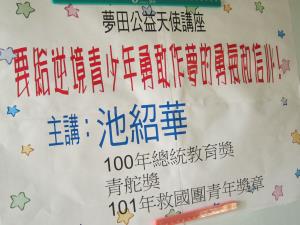 夢田公益天使講座
要臨逆境青少年勇敢作夢的勇氣和信心!
主講：池紹華
100年總統教育獎
青舵獎
101年救國團青年獎章